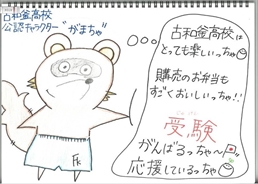 古和釜高校
公認キャラクター"がまちゃ"
古和釜高校は
とっても楽しいっちゃ
購売のお弁当も
すごくおいしいっちゃ!!
受験
がんばるっちゃ〜
応援しているっちゃ
FK